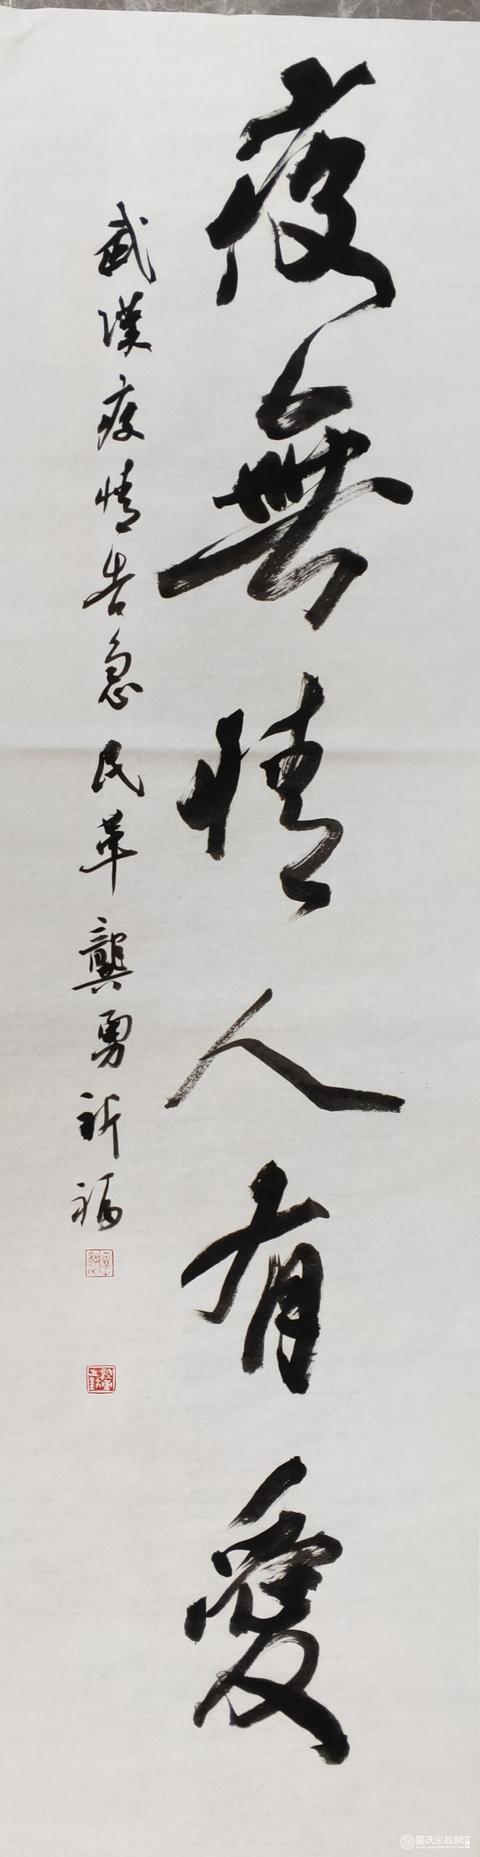 疫無情人有愛
武漢疫情告急民革龔勇祈福